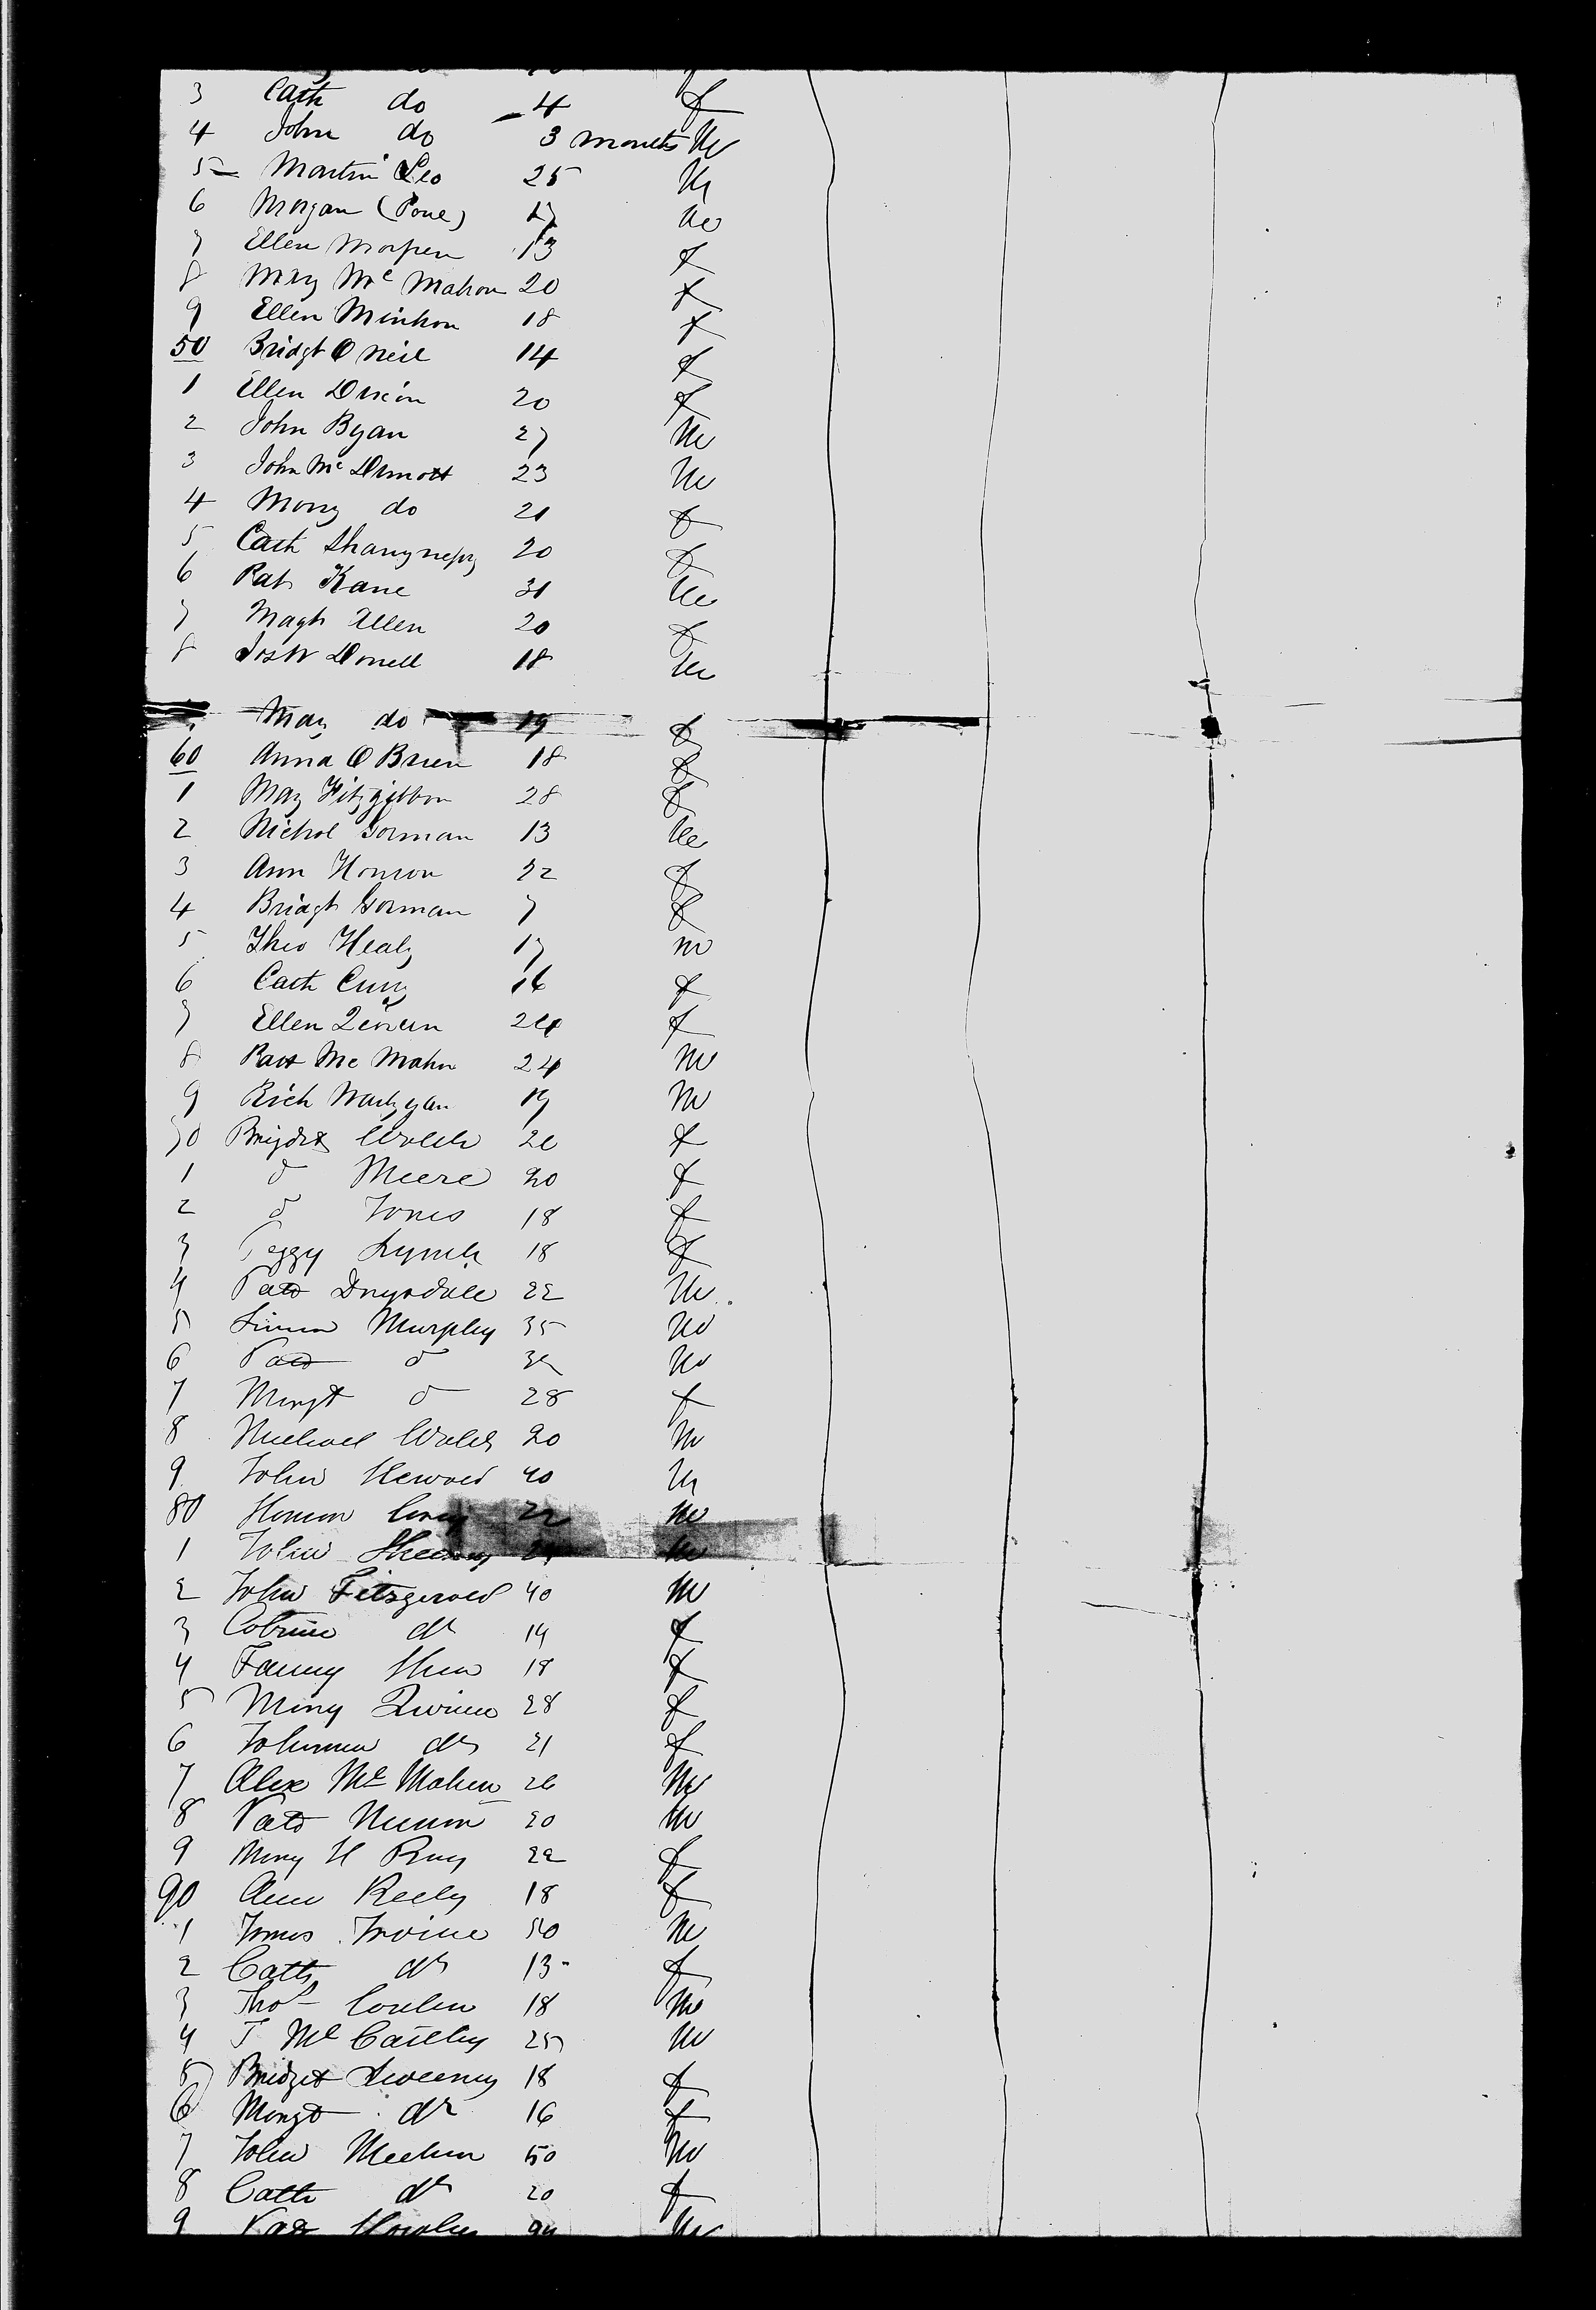 3 Cath do 4 f
4 John do 3 months M
5 Martin Leo 25 M
6 Morgan (Pone) 17 M
7 Ellen 13 f
8 Mary Mc Mahon 20 f
9 Ellen Minhon 18 f
50 Bridgt O Neil 14 f
1 Ellen Dixion 20 f
2 John Ryan 27 M
3 John Mc Dmott 23 M
4 Mary do 21 f
5 Cath 20 f
6 Pat Kane 31 M
7 Magt Allen 20 f
8 Donell 18 M
May do 19 f
60 Anna O Brien 18 f
1 May Fitzgibbon 28 f
2 Nichol Gorman 13 M
3 Ann Honron 22 f
4 Bridgt Gorman 7 f
5 Theo Healy 17 m
6 Cath Curry 16 f
7 Ellen 24 f
8 Patt Mc Mahn 24 M
9 Rich 19 M
70 Bridgt Walch f
1 d Meere 20 f
2 d Jones 18 f
3 Peggy Lynch 18 f
4 Patt Drysdale 22 M
5 Simon Murphy 35 M
6 Patt d M
7 Margt d 28 f
8 Michael Walch 20 M
9 John 40 M
80 22 M
1 John M
2 John Fitzgerald 40 M
3 do 14 f
4 Fanny Shea 18 f
5 Mary 28 f
6 Johanna do 21 f
7 Alex Mc Mahon 26 M
8 Patt 20 M
9 Mary H 22 f
90 Ann Reely 18 f
1 James Irvine 50 M
2 Cath do 13 f
3 Thos 18 M
4 J Mc Carthy 25 M
5 Bridget Sweeney 18 f
6 Margt do 16 f
7 John Meehan 50 M
8 Cath do 20 f
9 M